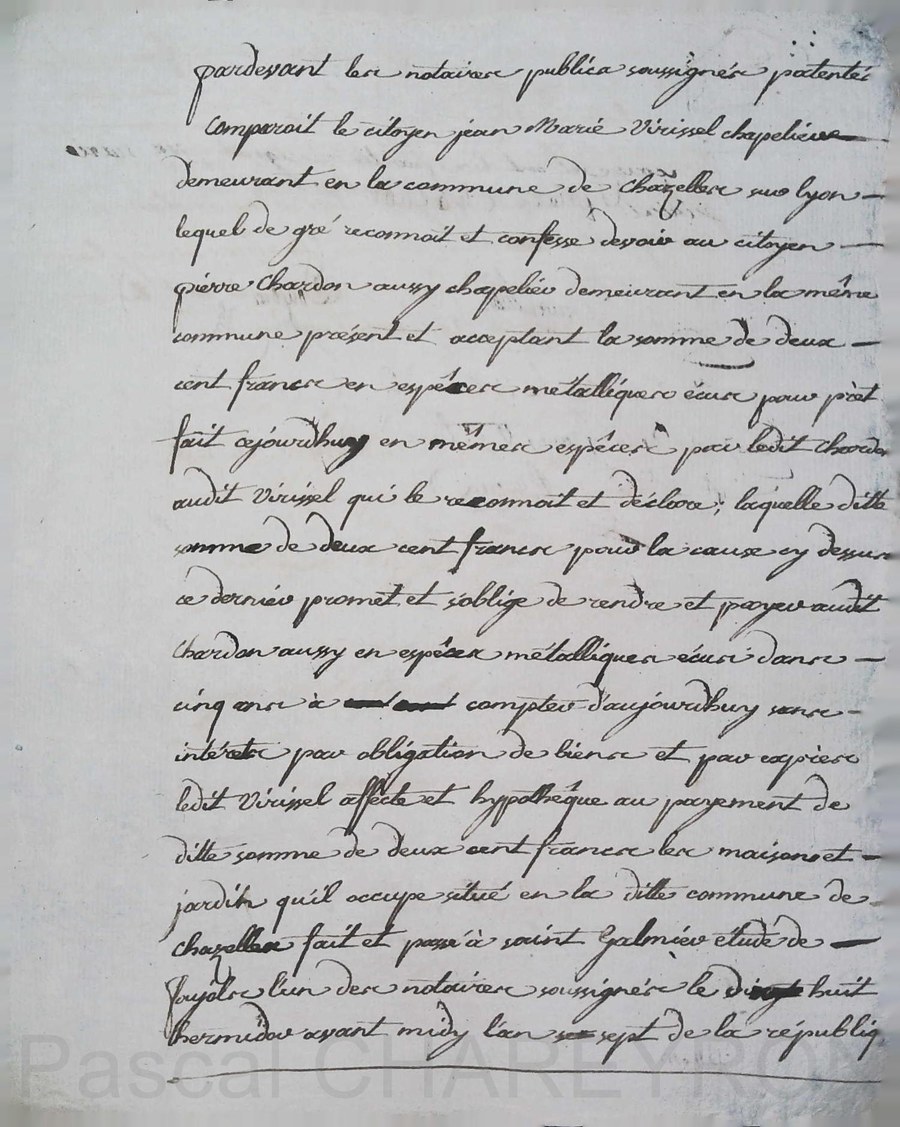 pardevant les notaires publics soussignés patentés
comparoit le citoyen jean Marie Virissel chapelier
demeurant en la commune de chazelles sur lyon
lequel de gré reconnoit et confesse devoir au citoyen
pierre Chardon aussy chapelier demeurant en la même
commune présent et acceptant la somme de deux
cent francs en espéces métalliques écus pour prèt
fait cejourdhuy en mêmes espéces par ledit chardon
audit Virissel qui le reconnoit et déclare; laquelle ditte
somme de deux cent francs pour la cause cy dessus
ce dernier promet et soblige de rendre et payer audit
Chardon aussy en espéces métalliques écus dans
cinq ans à compter d'aujourdhuy sans
intérets par obligation de biens et par exprés
ledit Virissel affecte et hypothêque au payement de
ditte somme de deux cent francs les maison et
jardin qu'il occupe situé en la ditte commune de
chazelles fait et passé à saint Galmier étude de
l'un des notaires soussignés le huit
thermidor avant midy l'an sept de la républiq
Pascal CHAREYRON